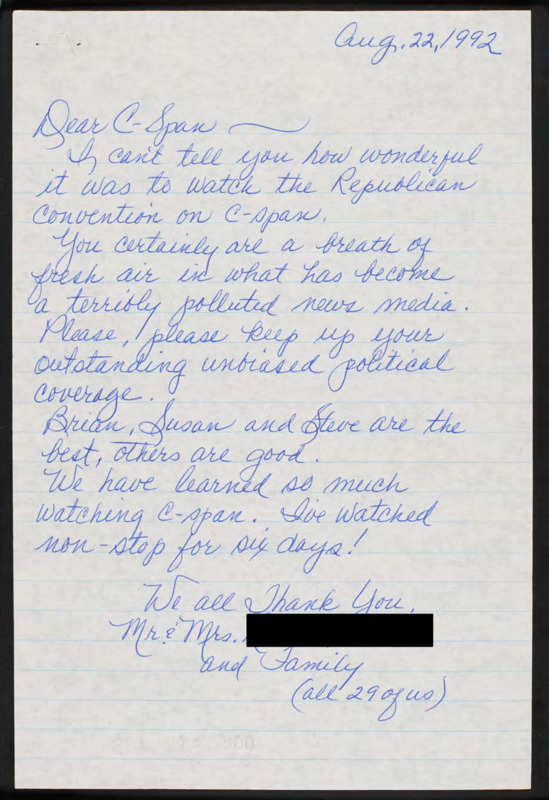 Aug. 22, 1992
Dear C-Span
I can't tell you how wonderful
it was to watch the Republican
Convention on C-span.
You certainly are a breath of
fresh air in what has become
a terribly polluted news media.
Please, please keep up your
outstanding unbiased political
coverage.
Brian, Susan and Steve are the
best, others are good.
We have learned so much
watching C-span. I've watched
non-stop for six days!
We all Thank You,
Mr. & Mrs.
and Family
(all 29 of us)